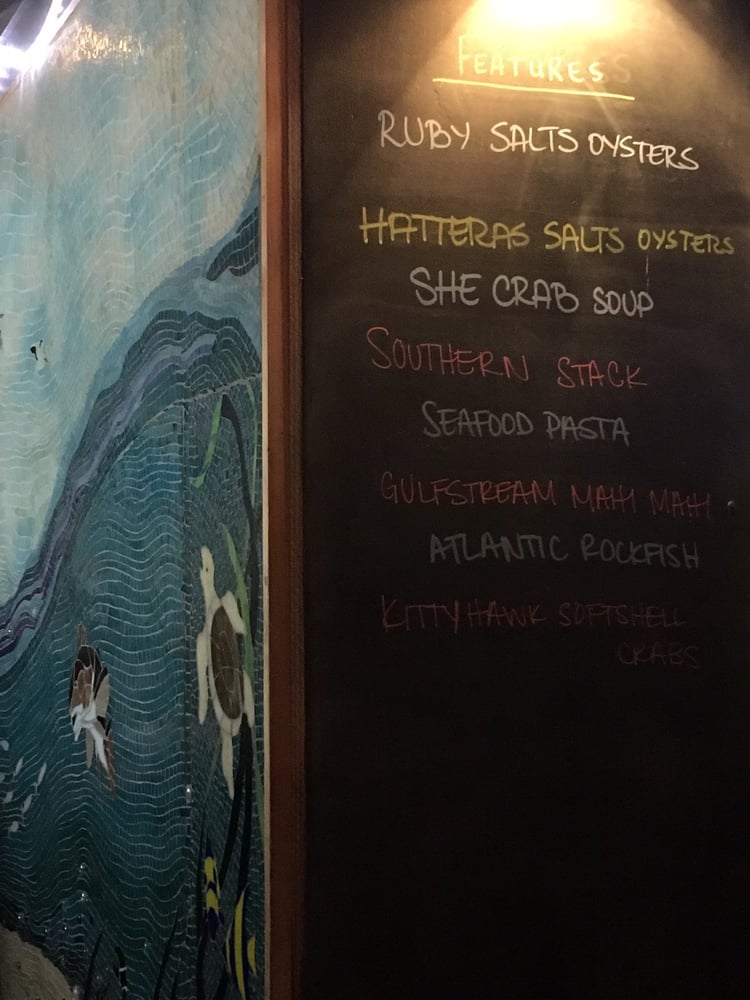 FEATURES
RUBY SALTS OYSTERS
HATTERAS SALTS OYSTERS
SHE CRAB SOUP
SOUTHERN STACK
SEAFOOD PASTA
GULFSTREAM MAHI MAHI
ATLANTIC ROCKFISH
KITTYHAWK SOFTSHELL
CRABS